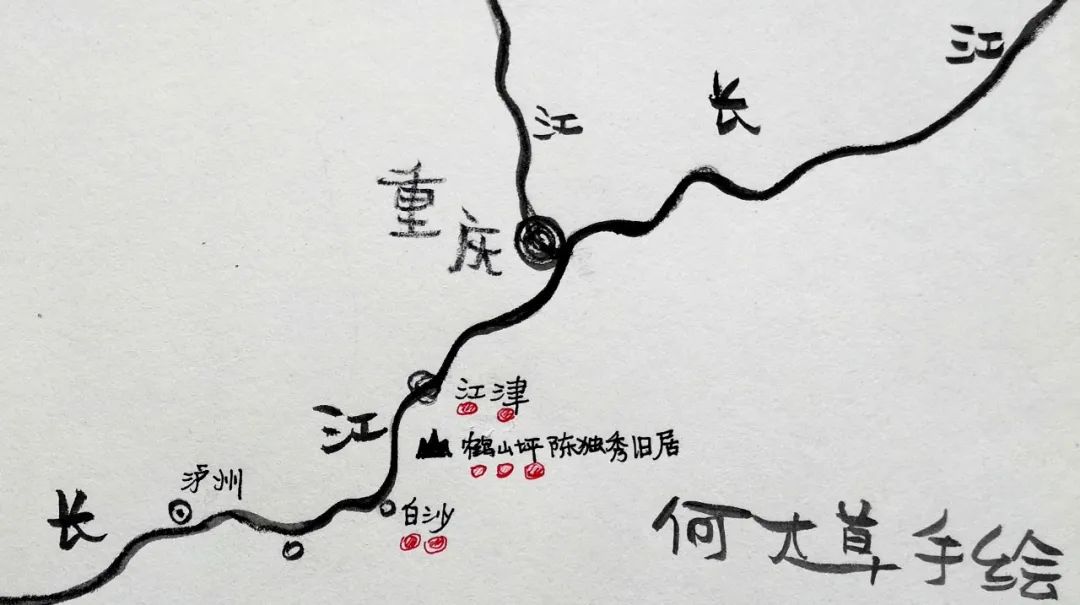 江
长
江
重庆
江津
江
鹤山坪 陈独秀旧居
泸州
白沙
长
何大草手绘